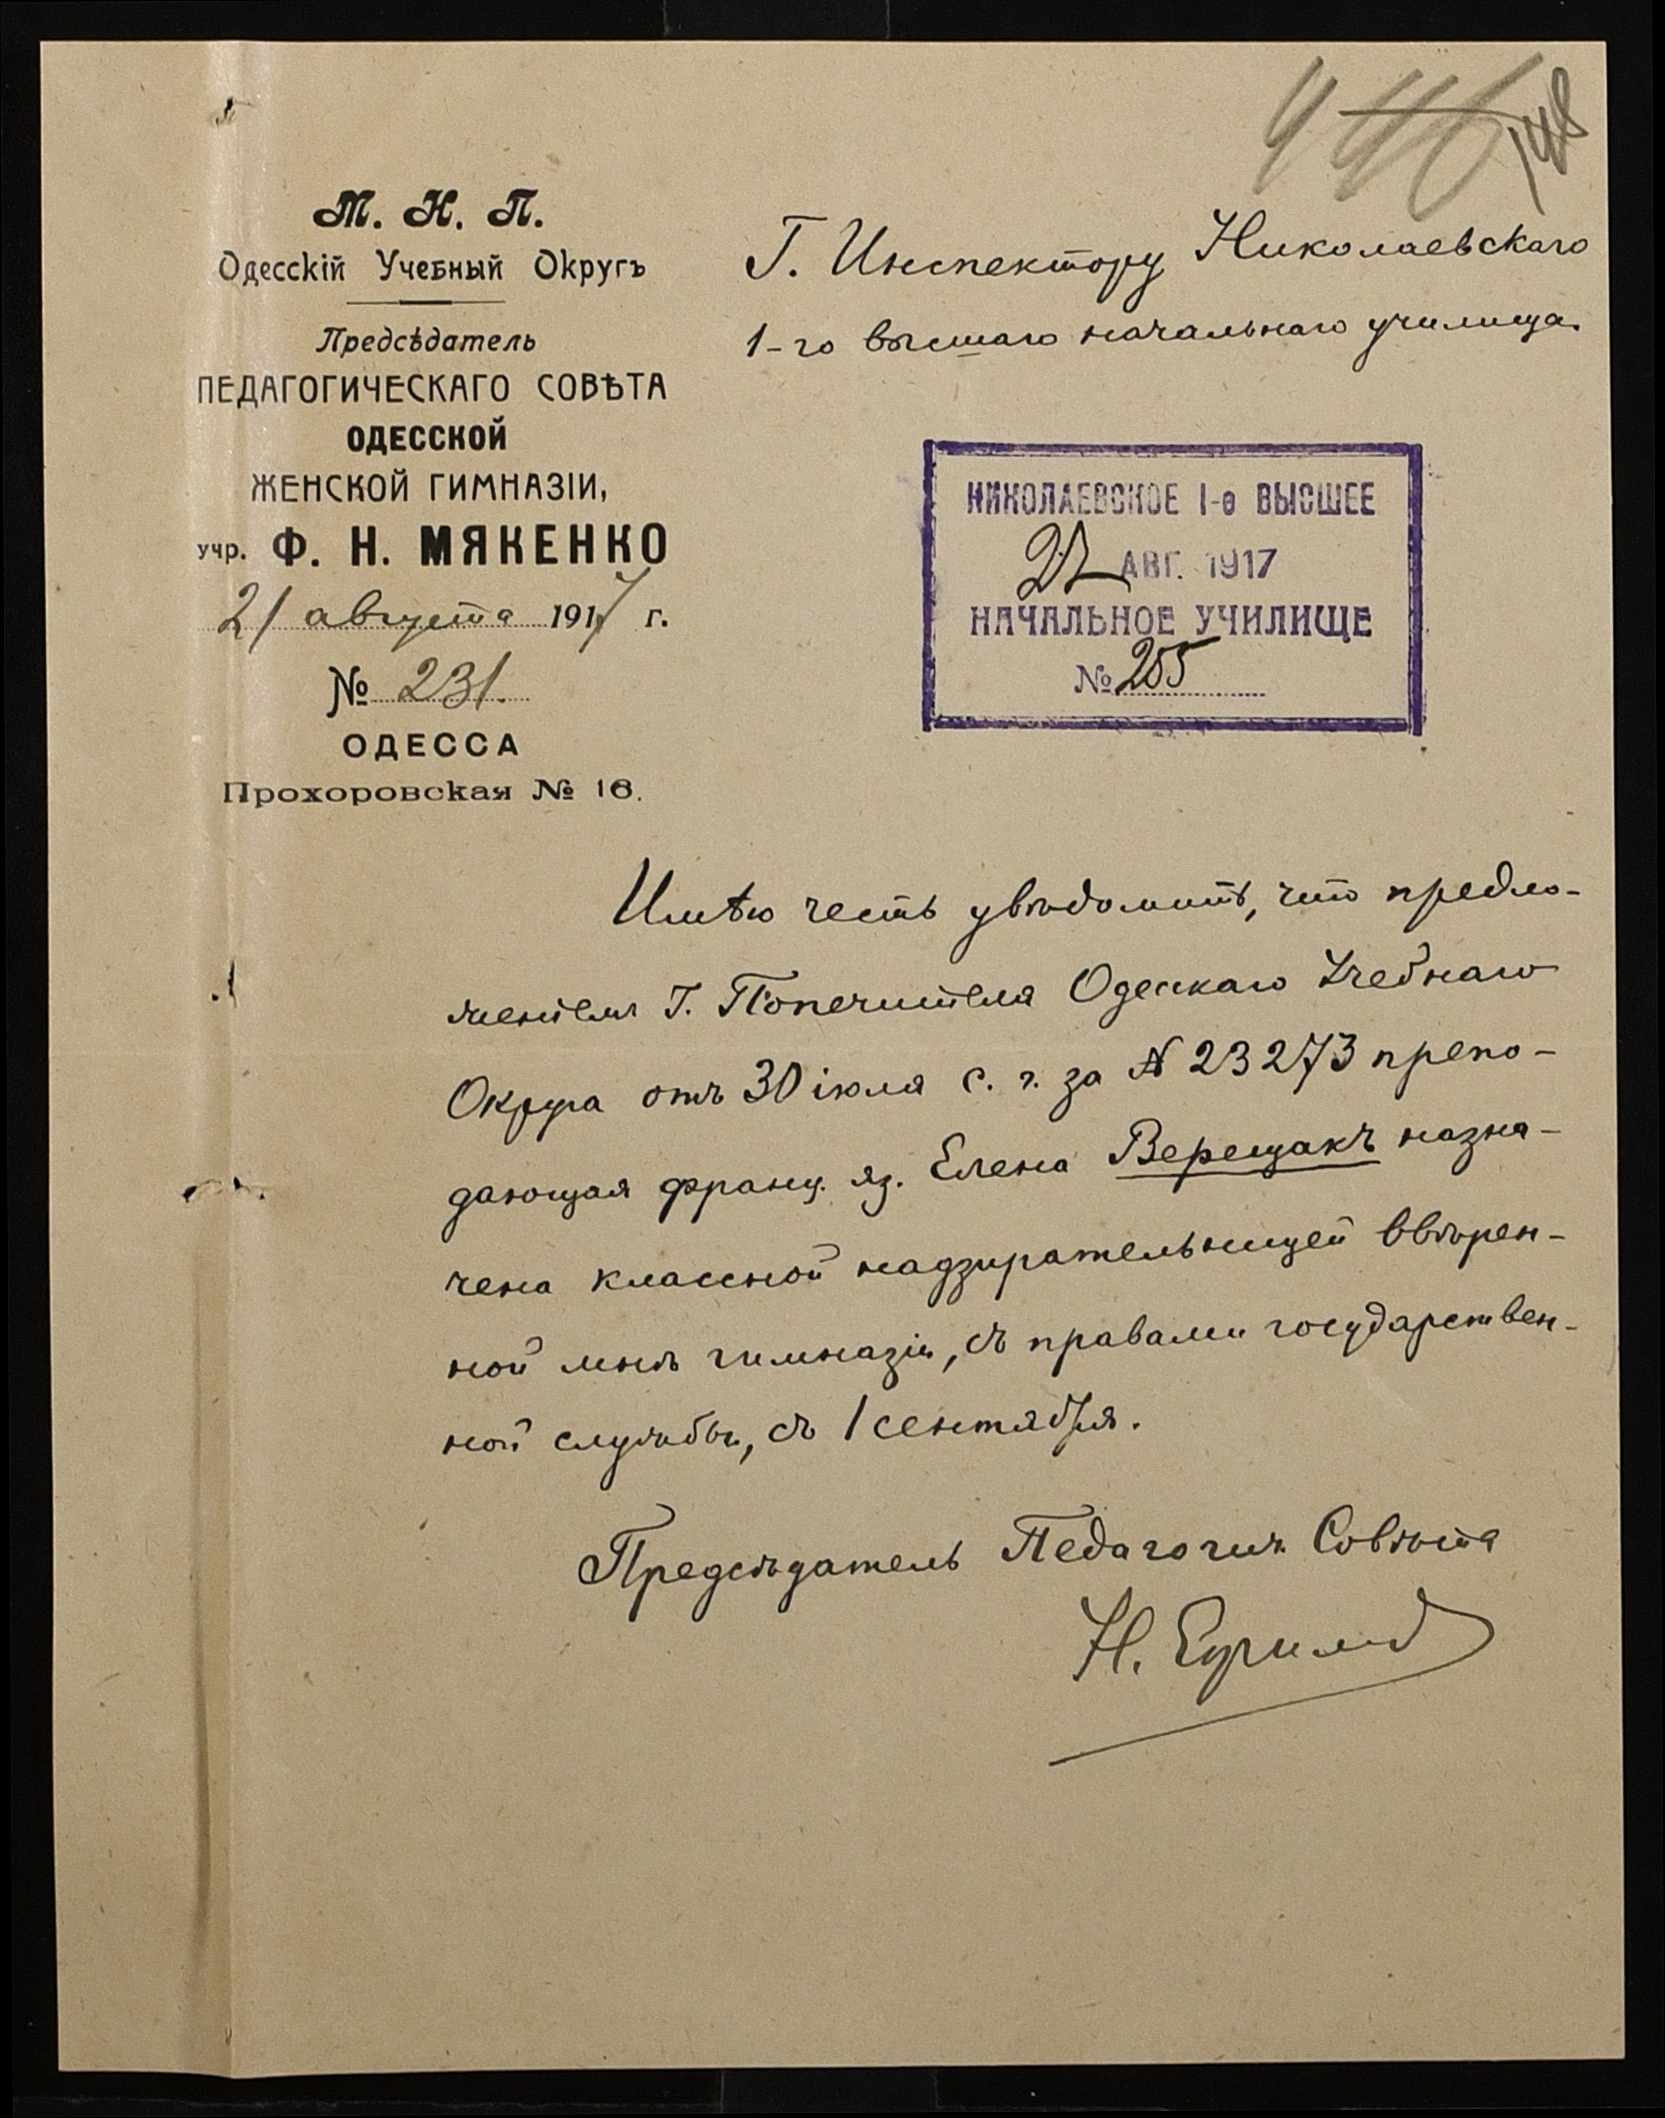 148
М. Н. П.
Одесскій Учебный Округъ
Предсѣдатель
ПЕДАГОГИЧЕСКАГО СОВѢТА
ОДЕССКОЙ
ЖЕНСКОЙ ГИМНАЗІИ,
учр. Ф. Н. МЯКЕНКО
21 августа 1917 г.
№ 231.
ОДЕССА
Прохоровская № 16.
Г. Инспектору Николаевскаго
1-го высшаго начальнаго училища.
НИКОЛАЕВСКОЕ I-е ВЫСШЕЕ
27 АВГ. 1917
НАЧАЛЬНОЕ УЧИЛИЩЕ
№ 255
Имѣю честь увѣдомить, что предло-
женіемъ Г. Попечителя Одесскаго Учебнаго
Округа отъ 30 іюля с. г. за № 23273 препо-
дающая франц. яз. Елена Верещакъ назна-
чена классной надзирательницей ввѣрен-
ной мнѣ гимназіи, съ правами государствен-
ной службы, съ 1 сентября.
Предсѣдатель Педагогич. Совѣта
Н.